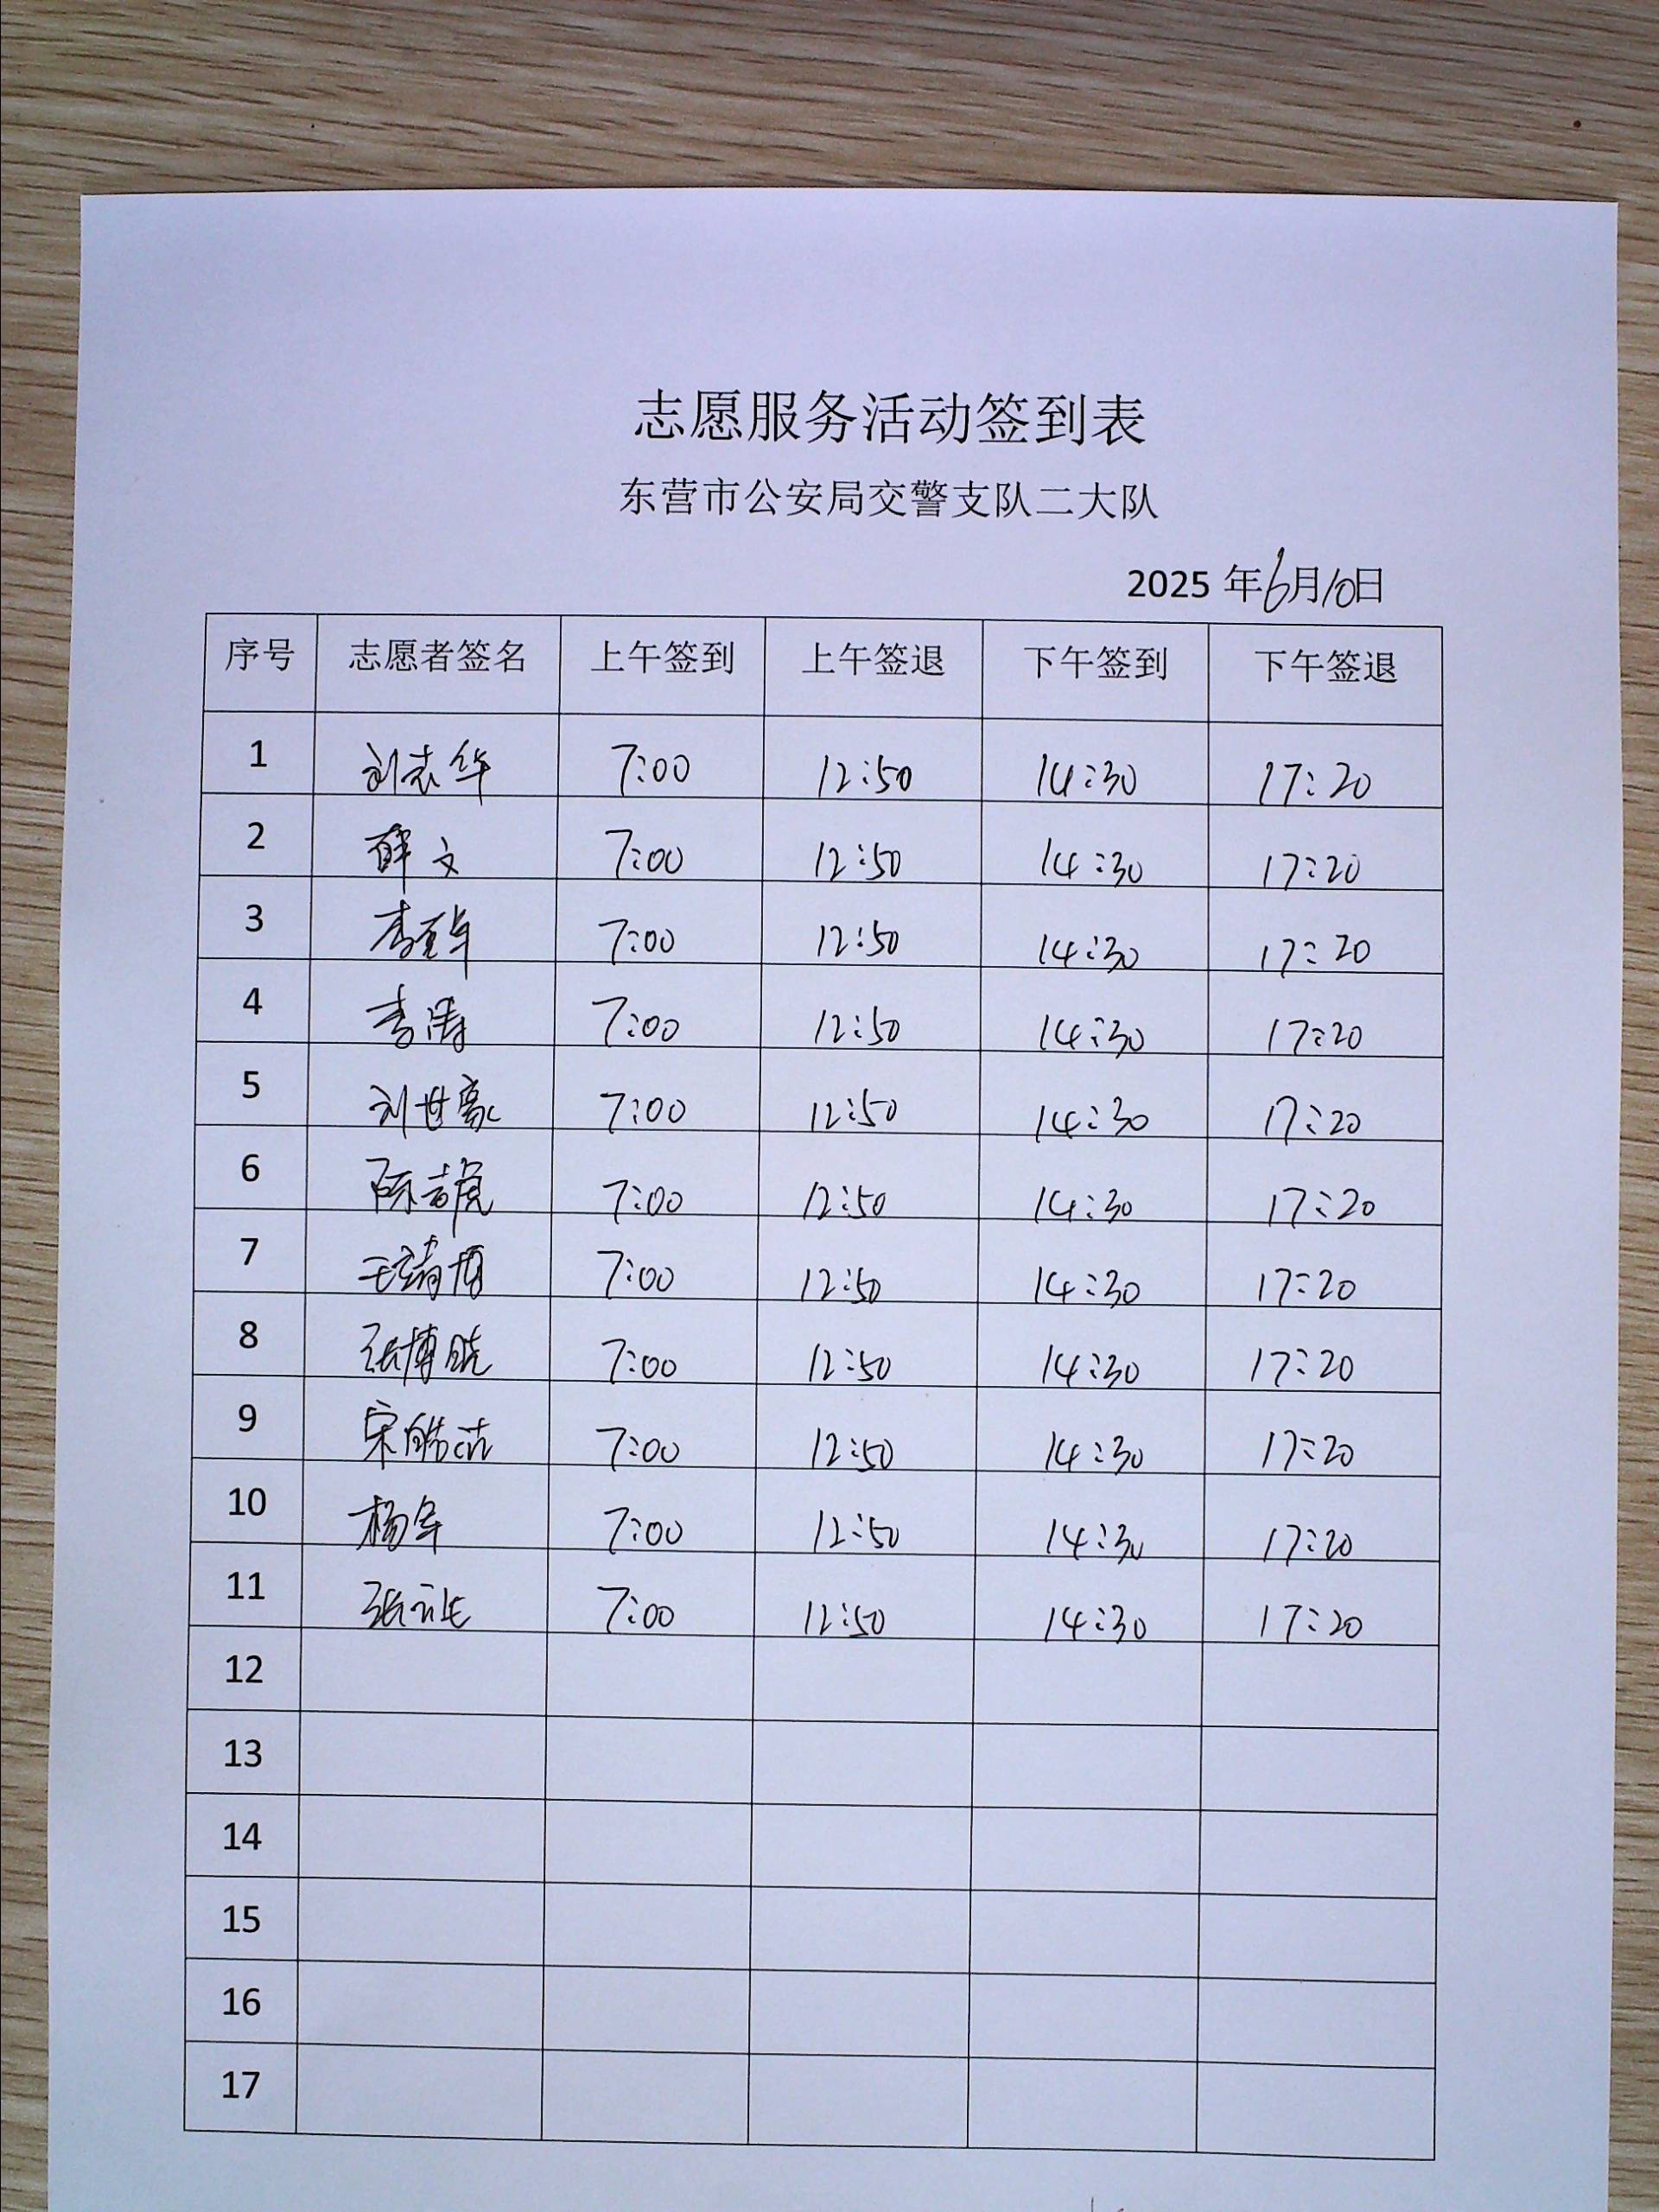 志愿服务活动签到表
东营市公安局交警支队二大队
2025 年6月10日
序号 志愿者签名 上午签到 上午签退 下午签到 下午签退
1 刘志华 7:00 12:50 14:30 17:20
2 薛文 7:00 12:50 14:30 17:20
3 李至年 7:00 12:50 14:30 17:20
4 李涛 7:00 12:50 14:30 17:20
5 刘世豪 7:00 12:50 14:30 17:20
6 陈志虎 7:00 12:50 14:30 17:20
7 王靖博 7:00 12:50 14:30 17:20
8 张博皓 7:00 12:50 14:30 17:20
9 宋皓洁 7:00 12:50 14:30 17:20
10 杨军 7:00 12:50 14:30 17:20
11 张 7:00 12:50 14:30 17:20
12
13
14
15
16
17